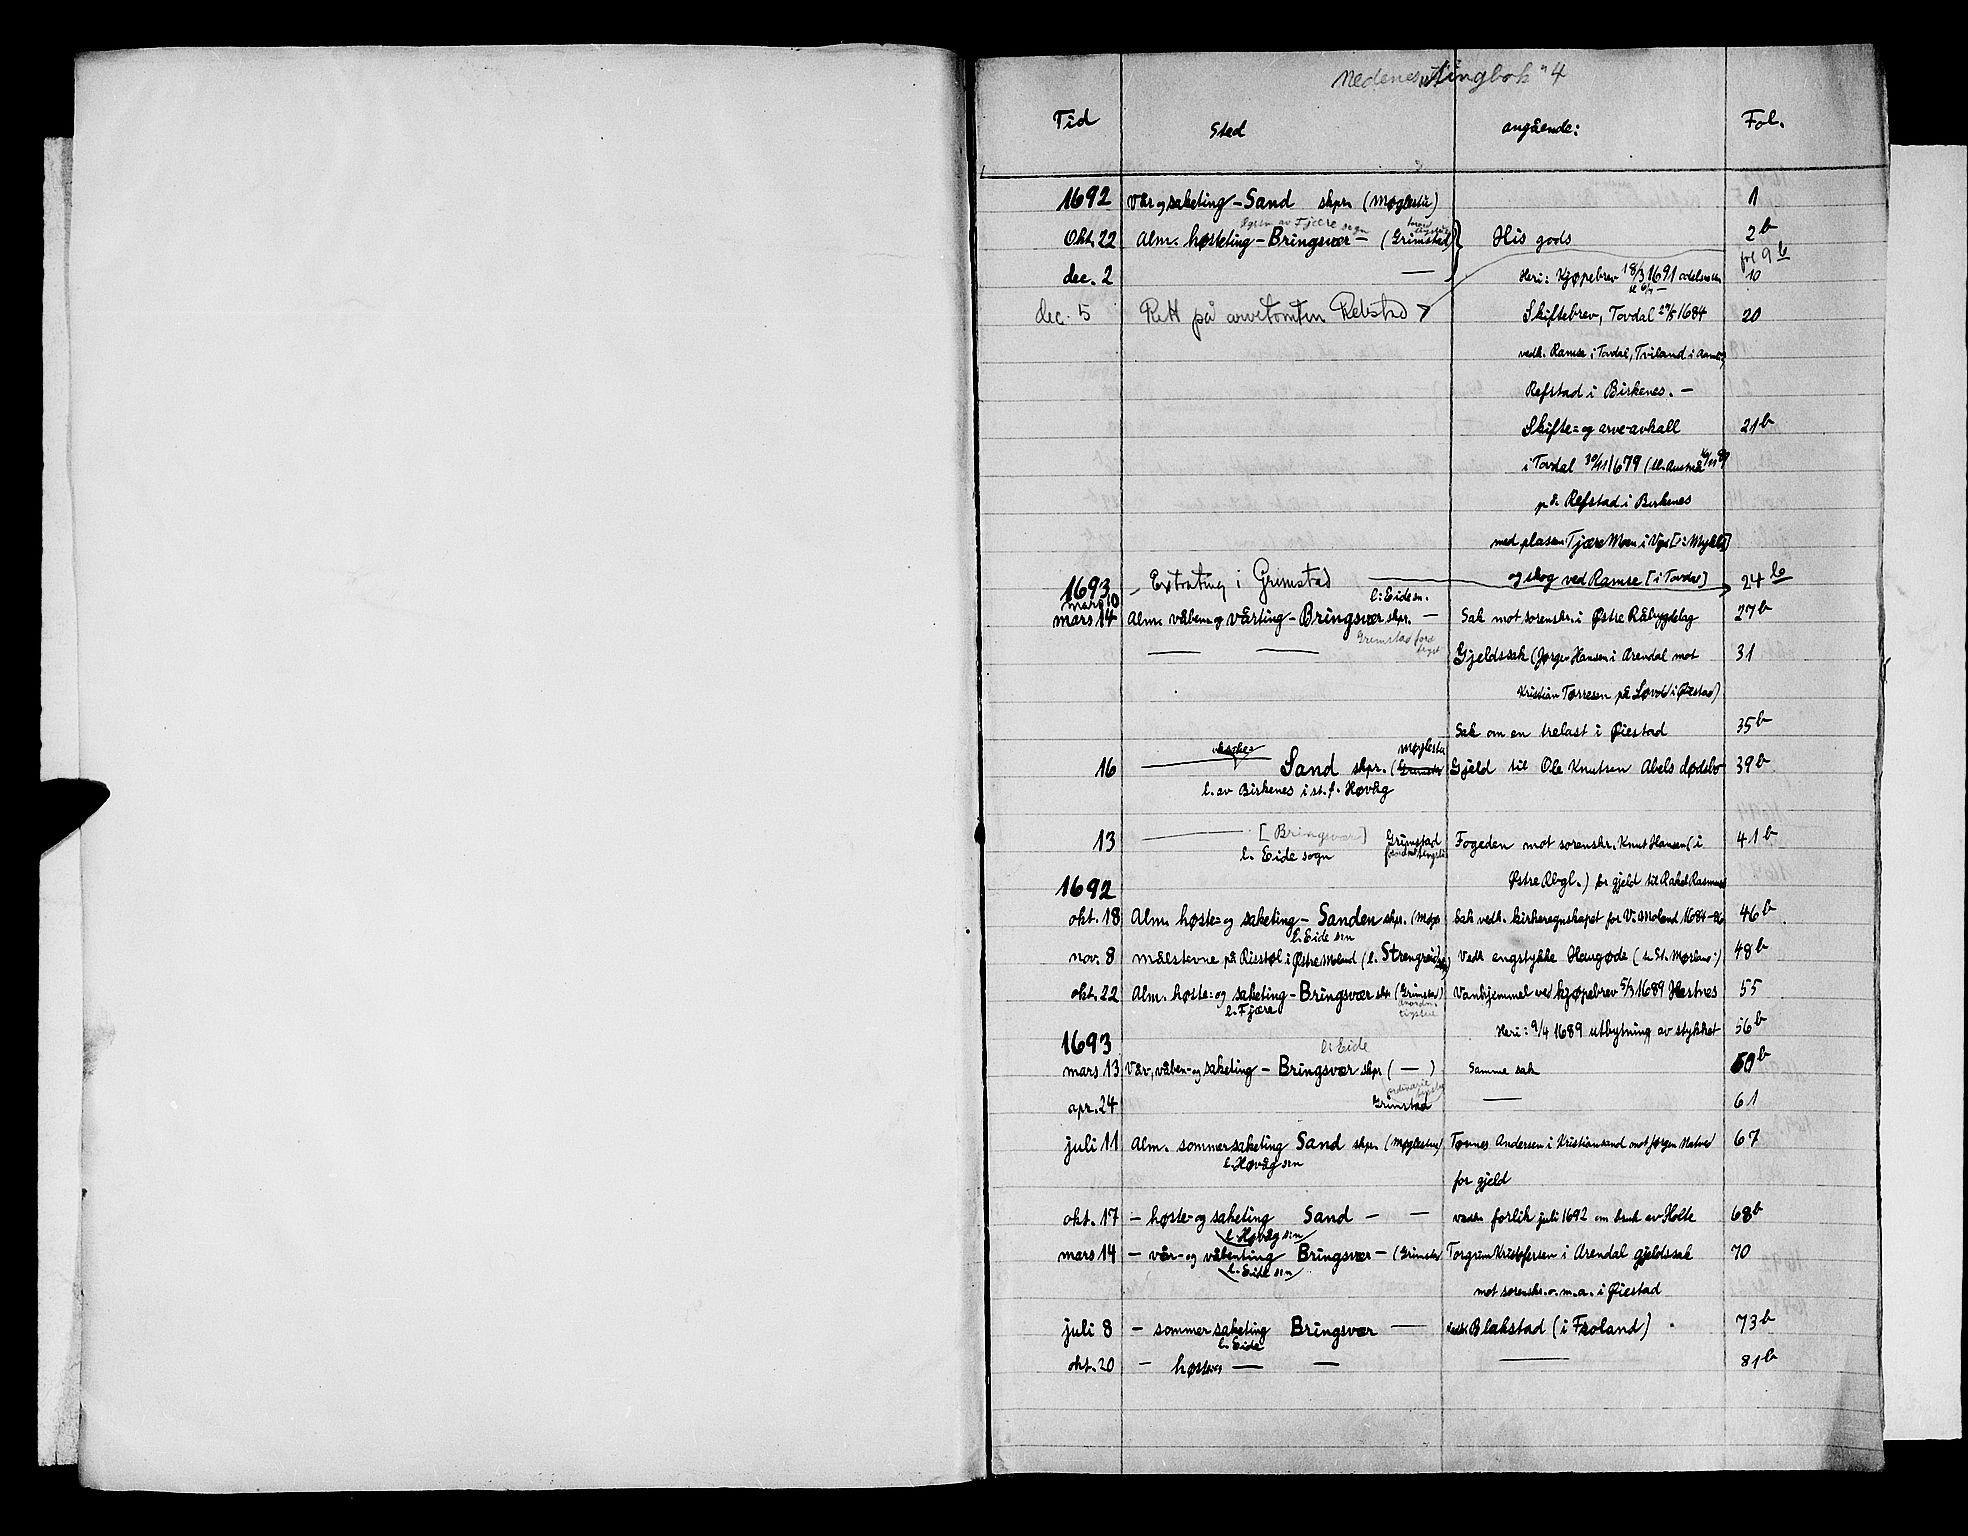 Nedenes Tingbok 4
Tid Sted angående: Fol.
1692 Vår og saketing – Sand skpr. (Møglestu) 1
Okt. 22 Alm. høsteting – Bringsvær – (Grimstad) His gods 2b
fol 9b
dec. 2 — Heri: Kjøpebrev 18/3 1691 10
dec. 5 Rett på arvetomten Refstad Skiftebrev, Tovdal 1684 20
vedk. Ramse i Tovdal, Tviland i
Refstad i Birkenes. –
Skifte= og arve-avkall 21b
i Tovdal 30/11 1679
på Refstad i Birkenes
med plassen Tjære Moen i
og skog ved Ramse [i Tovdal]
1693 mars 10 – Extrating i Grimstad 24b
l: Eide sn.
mars 14 Alm. våben- og vårting – Bringsvær skpr. – Sak mot sorenskr. i Østre Råbygdelag 27b
Grimstad
— — Gjeldssak (Jørgen Hansen i Arendal mot 31
Kristian Tørresen på i Øiestad)
Sak om en trelast i Øiestad 35b
Møglestu
16 — Sand skpr. (Grimstad Gjeld til Ole Knutsen Abels dødsbo 39b
l. av Birkenes i st. f. Høvåg
13 — [Bringsvær] Grimstad Fogeden mot sorenskr. Knut Hansen (i 41b
l. Eide sogn
Østre Rbgl.) for gjeld til Rakel Rasmus
1692
okt. 18 Alm. høste= og saketing – Sanden skpr. (Møgl Sak vedk. kirkeregnskapet for V. Moland 1684–86 46b
l. Eide sn
nov. 8 målstevne på Riestøl i Østre Moland (l. Strengereid) Vedk engstykke Haugøde 48b
okt. 22 Alm. høste= og saketing – Bringsvær skpr (Grimstad) Vanhjemmel ved kjøpebrev 5/3 1689 Hestnes 55
l. Fjære
Heri: 9/4 1689 utbytning av stykket 56b
1693
l: Eide
mars 13 Vår, våben- og saketing – Bringsvær skpr ( — ) Samme sak 50b
ordinarie
apr. 24 Grimstad — 61
juli 11 Alm. sommersaketing Sand skpr. (Møglestu) Tønnes Andersen i Kristiansand mot Jørgen 67
l. Høvåg sn
for gjeld
okt. 17 – høste- og saketing Sand – – vedk. forlik juli 1692 om bruk av Holte 68b
l. Høvåg sn
mars 14 – vår- og våbenting Bringsvær – (Grimstad Torgrim Kristofersen i Arendal gjeldssak 70
l. Eide sn
mot sorenskr. o. m. a. i Øiestad
juli 8 – sommersaketing Bringsvær — vedk. Blakstad (i Froland) 73b
l. Eide
okt. 20 – høste — — — 81b